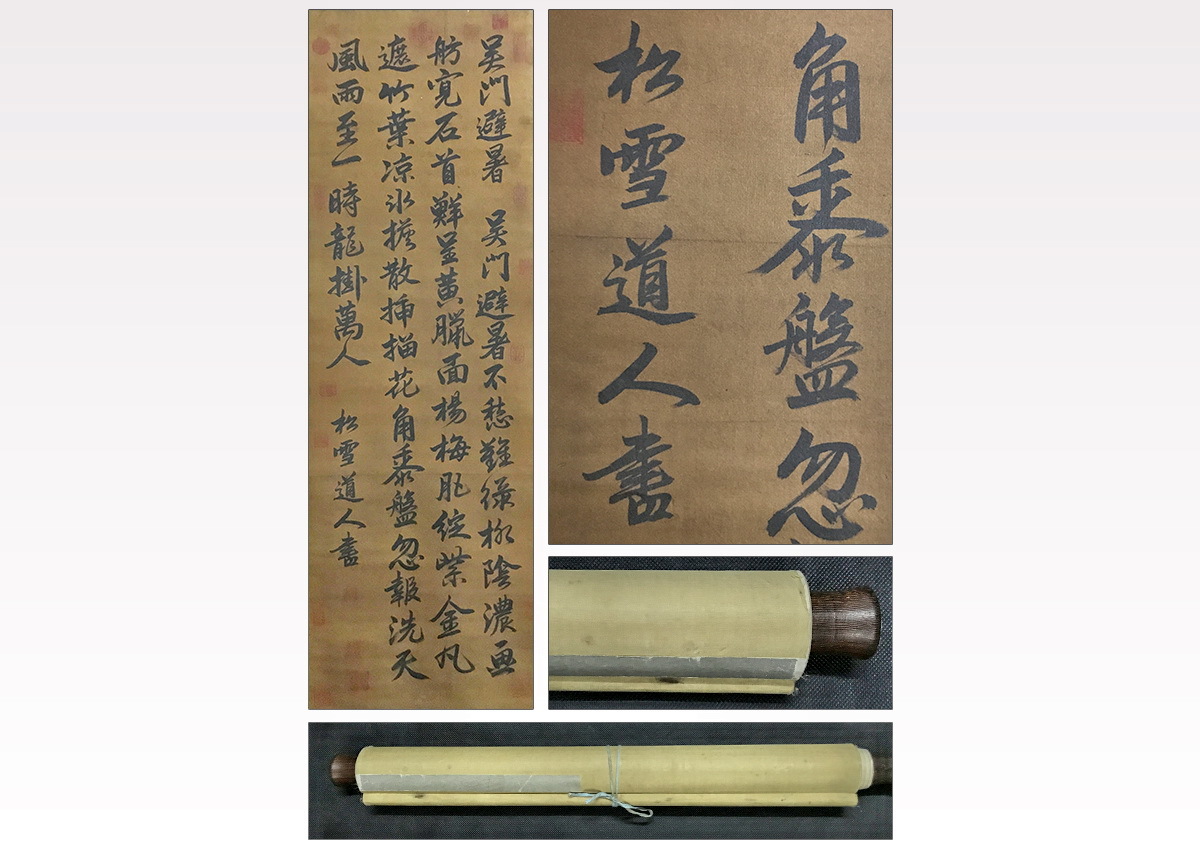 吴門避暑 吴門避暑不愁難緑柳陰濃画
舫寛石首鮮呈黄臘面楊梅肥綻紫金凡
遮竹葉凉氷散插描花角黍盤忽報洗天
風雨至一時龍掛萬人
松雪道人書
角黍盤忽
松雪道人書